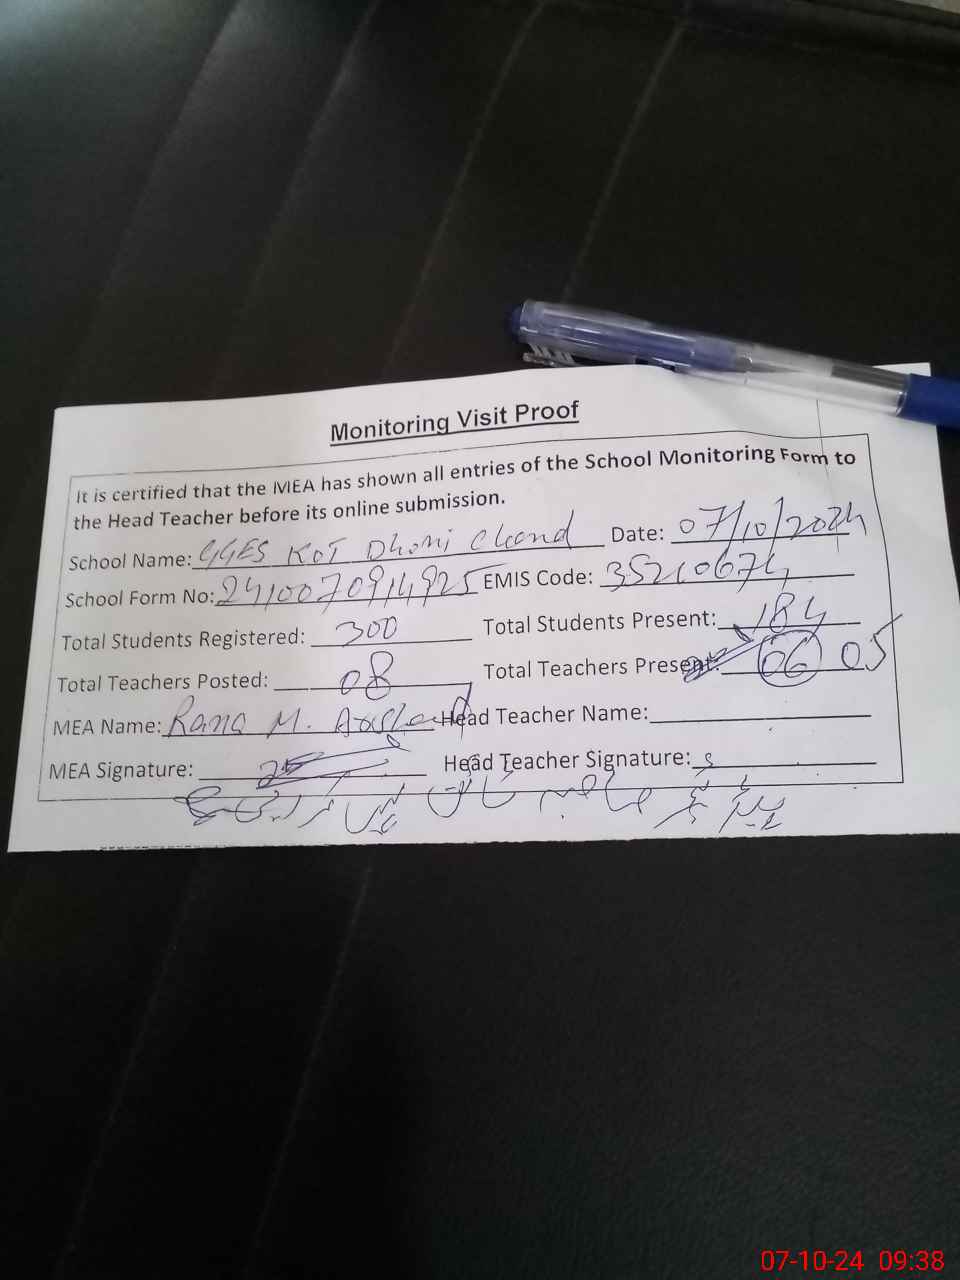 Monitoring Visit Proof
It is certified that the MEA has shown all entries of the School Monitoring Form to
the Head Teacher before its online submission.
School Name: GGES KOT Dhoni Chand Date: 07/10/2024
School Form No: 2410070914925 EMIS Code: 35210674
Total Students Registered: 300 Total Students Present: 184
Total Teachers Posted: 08 Total Teachers Present: 06 05
MEA Name: Rana M. Head Teacher Name:
MEA Signature: Head Teacher Signature:
07-10-24 09:38